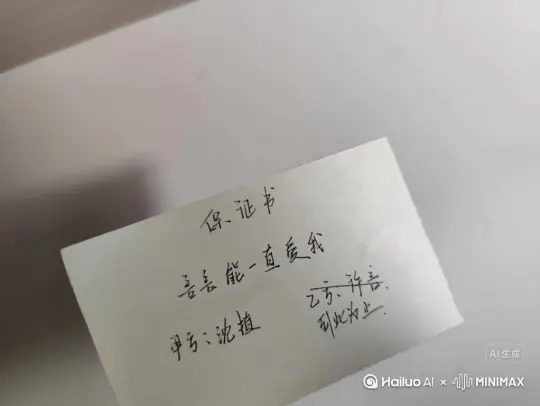 保证书
言言能一直爱我
甲方:沈植
乙方:许言
到此为止
AI生成
Hailuo AI × MINIMAX